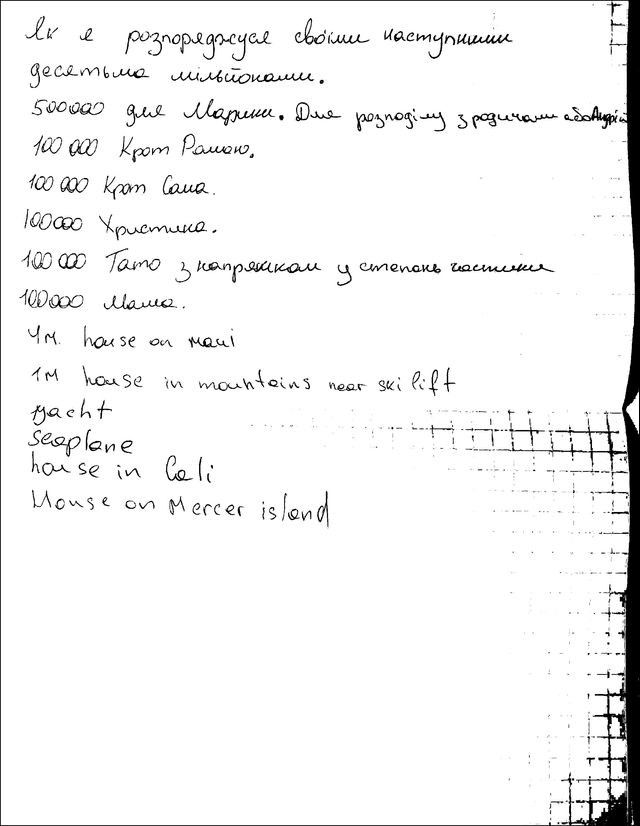 Як я розпоряджуся своїми наступними
десятьма мільйонами.
500000 для Марини. Для розподілу з родичами або Андрій
100 000 Крот Рамаю.
100 000 Крот Саша.
100000 Христина.
100 000 Тато з напрямком у степень частики
100000 Мама.
4м. house on Maui
1м house in mountains near ski lift
yacht
seaplane
house in Cali
House on Mercer island